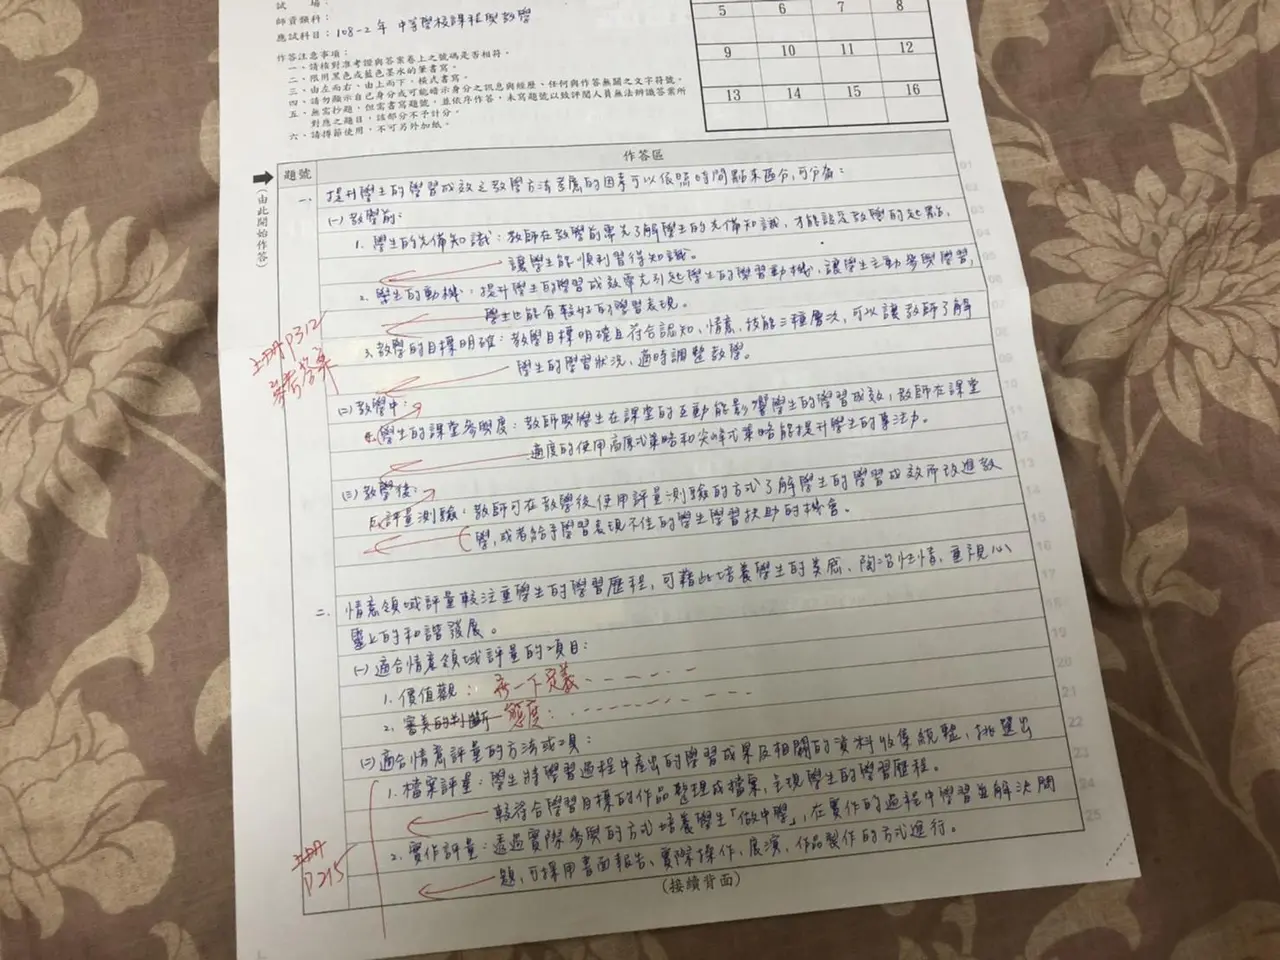 試 場：
師資類科：
應試科目：108-2年 中等學校課程與教學
5 6 7 8
9 10 11 12
13 14 15 16
作答注意事項：
一、請核對准考證與答案卷上之號碼是否相符。
二、限用黑色或藍色墨水的筆書寫。
三、由左而右、由上而下、橫式書寫。
四、請勿顯示自己身分或可能暗示身分之訊息與經歷、任何與作答無關之文字符號。
五、無需抄題，但需書寫題號，並依序作答，未寫題號以致評閱人員無法辨識答案所
對應之題目，該部分不予計分。
六、請撙節使用，不可另外加紙。
（由此開始作答）
題號 作答區
一、提升學生的學習成效之教學方法考慮的因素可以依照時間點來區分，可分為：
(一)教學前：
1. 學生的先備知識：教師在教學前需先了解學生的先備知識，才能設定教學的起點，
讓學生能順利習得知識。
2. 學生的動機：提升學生的學習成效需先引起學生的學習動機，讓學生主動參與學習，
學生也能有較好的學習表現。
3. 教學的目標明確：教學目標明確且符合認知、情意、技能三種層次，可以讓教師了解
學生的學習狀況，適時調整教學。
P312
參考答案
(二)教學中：
學生的課堂參與度：教師與學生在課堂的互動能影響學生的學習成效，教師在課堂
適度的使用高原式策略和尖峰式策略能提升學生的專注力。
(三)教學後：
評量測驗：教師可在教學後使用評量測驗的方式了解學生的學習成效而改進教
學，或者給予學習表現不佳的學生學習扶助的機會。
二、情意領域評量較注重學生的學習歷程，可藉此培養學生的美感、陶冶性情，重視心
靈上的和諧發展。
(一)適合情意領域評量的項目：
1. 價值觀：寫一下定義
2. 審美的判斷 態度：
(二)適合情意評量的方法或工具：
1. 檔案評量：學生將學習過程中產出的學習成果及相關的資料收集統整，挑選出
較符合學習目標的作品整理成檔案，呈現學生的學習歷程。
2. 實作評量：透過實際參與的方式培養學生「做中學」，在實作的過程中學習並解決問
題，可採用書面報告、實際操作、展演、作品製作的方式進行。
P215
（接續背面）
01
02
03
04
05
06
07
08
09
10
11
12
13
14
15
16
17
18
19
20
21
22
23
24
25